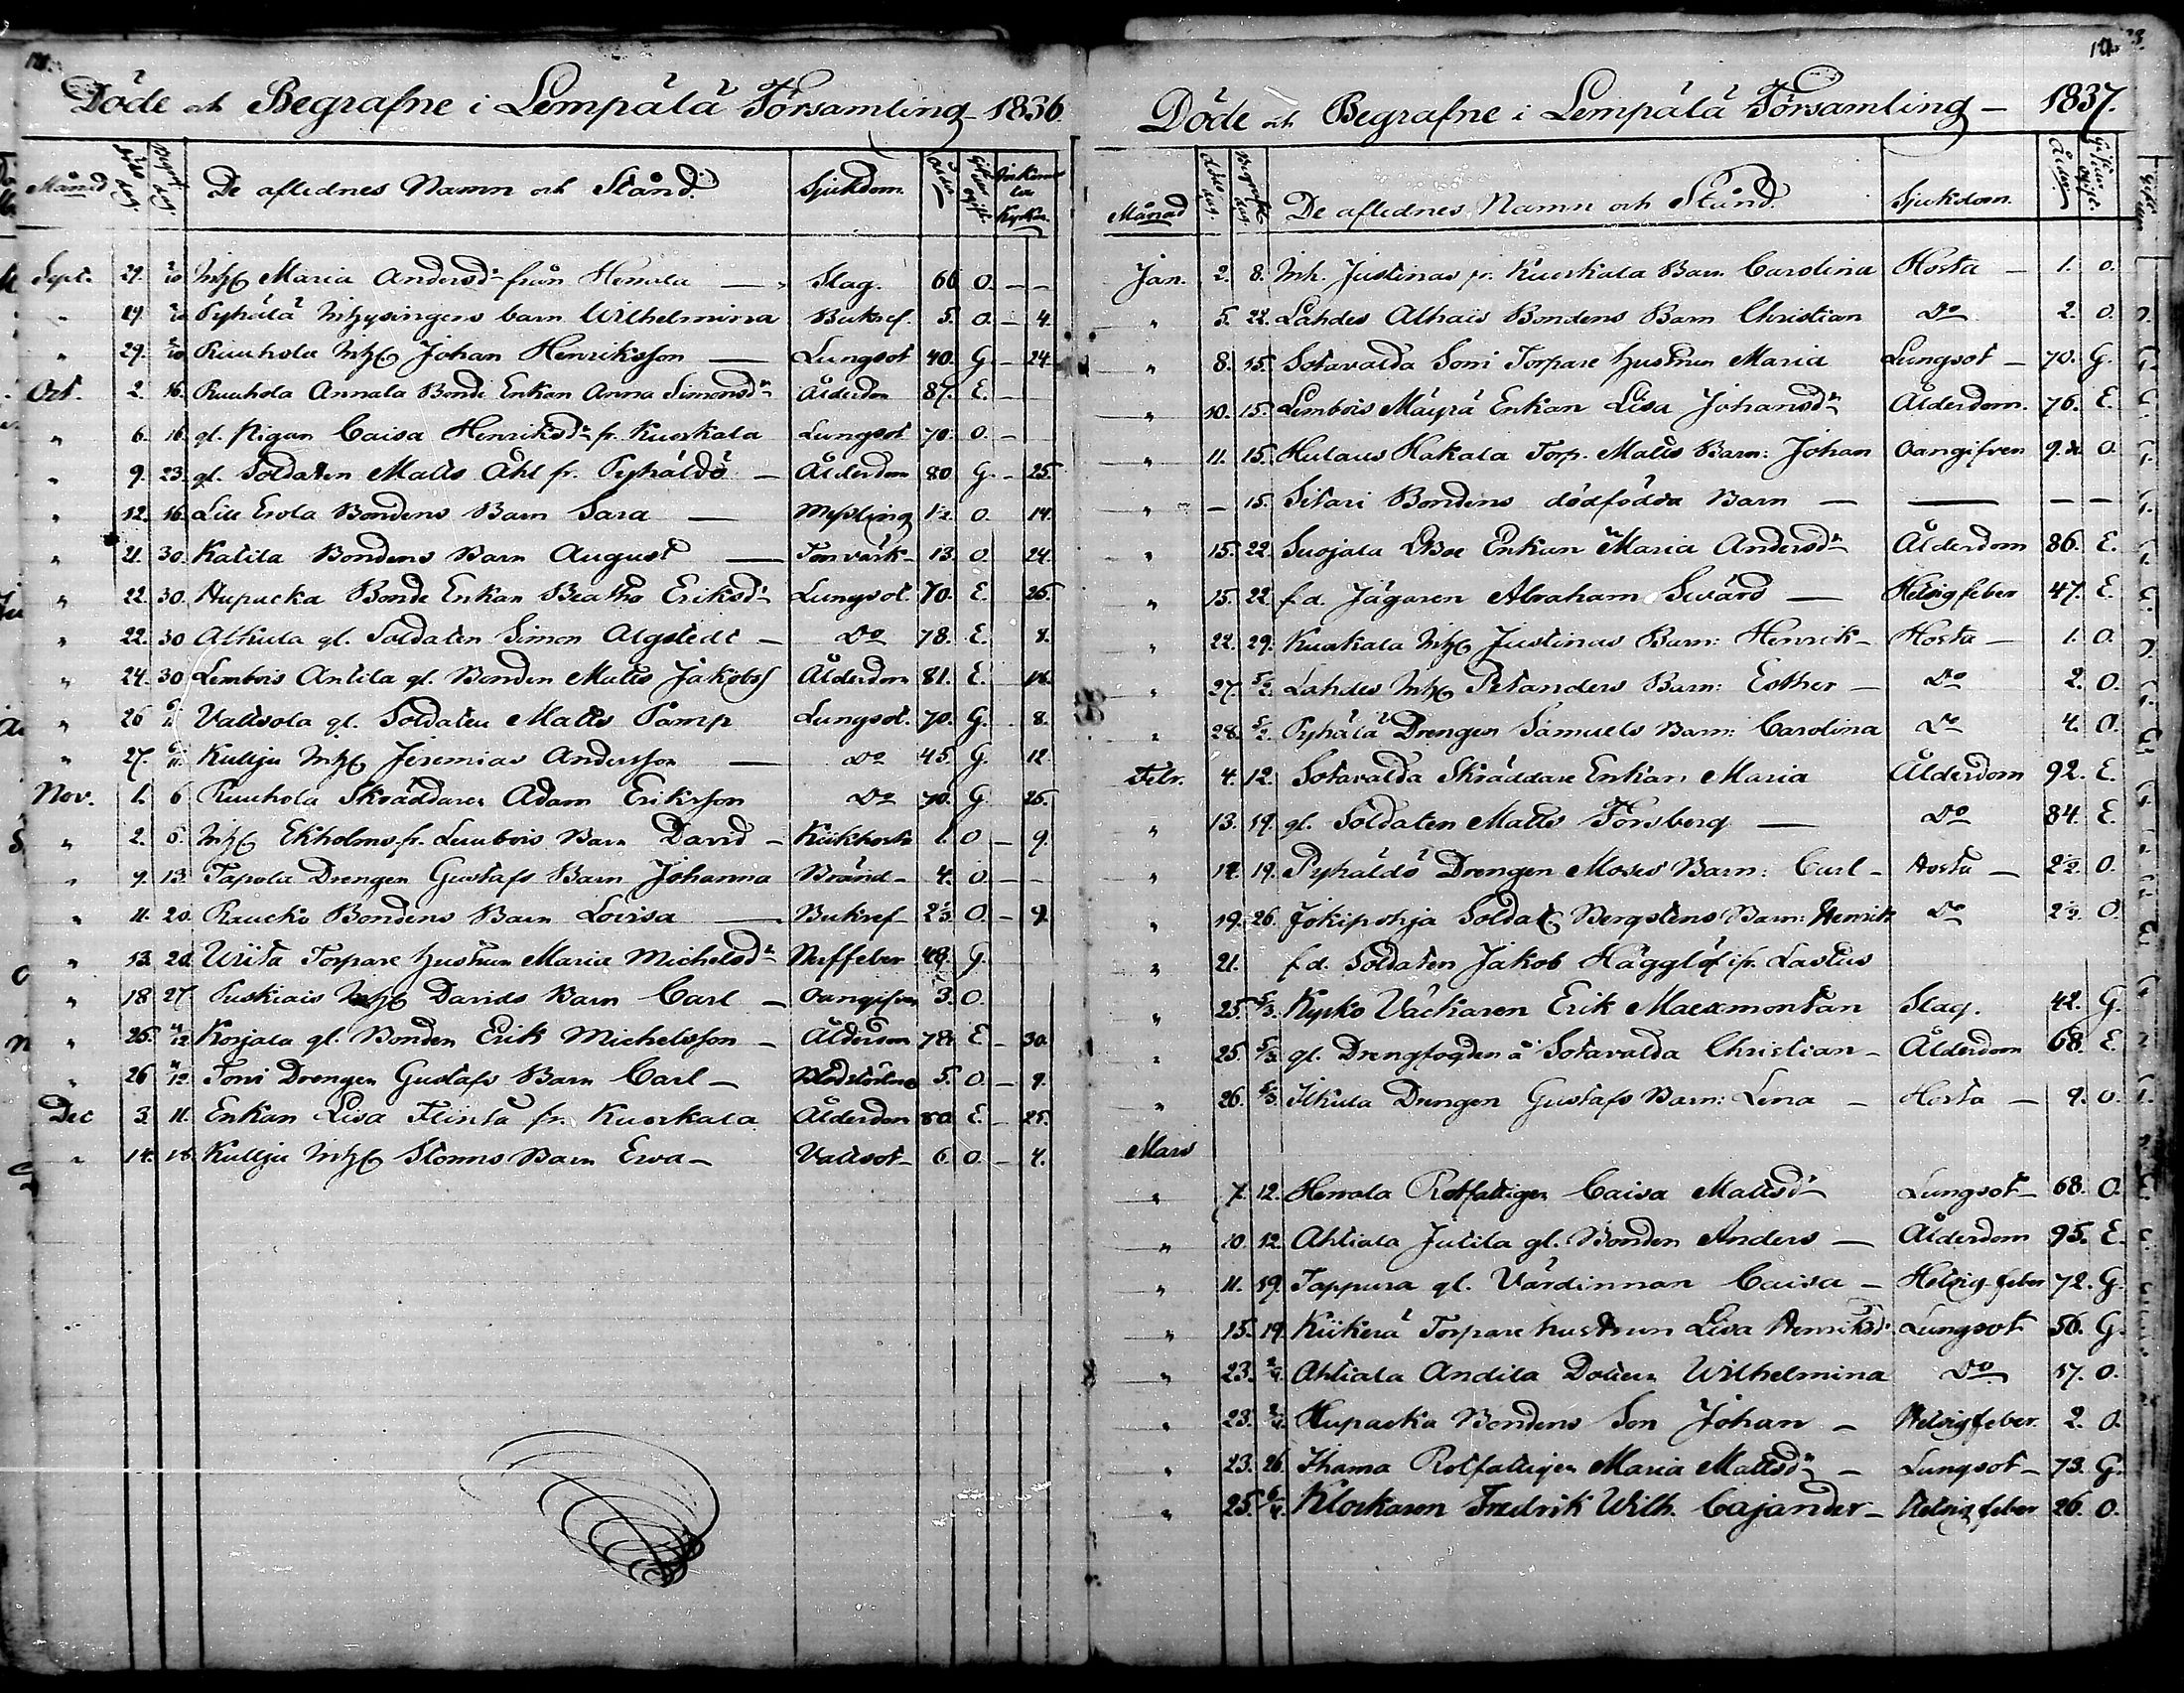 Döde och Begrafne i Lempälä Församling 1836.
Månad döds dag Begrafn. dag De aflednes Namn och Stånd. Sjukdom. Ålder Gift eller ogift Kyrkan
Sept. 29. 2/10 Inhs Maria Andersdr från Herrala — Slag. 66 O. – –
" 29 2/10 Pyhälä Inhysingens barn Wilhelmina Bukref. 5. O. – 4.
" 29. 2/10 Ruuhola Inhs Johan Henriksson — Lungsot 40. G. – 24.
Oct. 2. 16. Ruuhola Annala Bonde Enkan Anna Simonsdr Ålderdom 87. E. –
" 6. 16. gl. Pigan Caisa Henriksdr fr. Kuorkala Lungsot 70. O. –
" 9. 23. gl. Soldaten Matts Åhl fr. Pyhäldö — Ålderdom 80 G. – 25.
" 12. 16. Lill Erola Bondens Barn Sara — Messling 1/2 O. 14.
" 21. 30. Katila Bondens Barn August — Torrvärk 13. O. 24.
" 22. 30. Hupacka Bonde Enkan Beatha Eriksdr Lungsot. 70. E. 25.
" 22. 30 Alkula gl. Soldaten Simon Algstedt — Do 78. E. 8.
" 24. 30 Lembois Antila gl. Bonden Matts Jakobss Ålderdom 81. E. 14.
" 26 6/11 Vattsola gl. Soldaten Matts Pamp Lungsot. 70. G. 8.
" 27. 6/11. Kullju Inhs Jeremias Andersson — Do 45. G. 12.
Nov. 1. 6 Ruuhola Skräddaren Adam Eriksson Do 70. G. 25.
" 2. 6. Inhs Ekholms fr. Lembois Barn David – Kikhosta 1. O – 9.
" 9. 13. Tapola Drengen Gustafs Barn Johanna Bränd – 4. O. – –
" 11. 20. Raucko Bondens Barn Lovisa — Bukref 2/3. O. – 9.
" 13. 20. Urita Torpare hustrun Maria Michelsdr Nerffeber 49. G.
" 18 27. Puskiais Inhs Davids Barn Carl – Oangifven 3. O.
" 25. 4/12 Korjala gl. Bonden Erik Michelsson – Ålderdom 78. E – 30.
" 26 4/12 Toni Drengen Gustafs Barn Carl – 5. O. – 9.
Dec 3. 11. Enkan Lisa Flinta fr. Kuorkala Ålderdom 80. E. – 25.
" 14. 18. Kullju Inhs Stoms Barn Ewa – Vattsot – 6. O. – 4.
Döde och Begrafne i Lempälä Församling – 1837.
Månad Döds dag. Begrafn. dag De aflednes Namn och Stånd. Sjukdom. Ålder. Gift eller ogift.
Jan. 2. 8. Inh. Justinas fr. Kuorkala Barn Carolina Hosta – 1. O.
" 5. 22. Lahdes Alhais Bondens Barn Christian Do 2. O.
" 8. 15. Sotavalda Soni Torpare hustrun Maria Lungsot – 70. G.
" 10. 15. Lembois Mäyrä Enkan Lisa Johansdr Ålderdom. 76. E.
" 11. 15. Hulaus Hakala Torp. Matts Barn: Johan Oangifven 9. O.
" – 15. Sitari Bondens dödfödda Barn — — – –
" 15. 22. Suojala Enkan Maria Andersdr Ålderdom 86. E.
" 15. 22 f.d. Jägaren Abraham Swärd — Hetsigfeber 47. E.
" 22. 29. Kuorkala Inhs Justinas Barn: Henrik – Hosta – 1. O.
" 27. 5/2. Lahdes Inhs Petanders Barn: Esther – Do 2. O.
" 28. 5/2. Pyhälä Drengen Samuels Barn: Carolina Do 4. O.
Febr. 4. 12. Sotavalda Skräddare Enkan Maria Ålderdom 92. E.
" 13. 19. gl. Soldaten Matts Forsberg — Do 84. E.
" 14. 19. Pyhäldö Drengen Moses Barn: Carl – Hosta – 2 1/2. O.
" 19. 26. Jokipohja Soldat. Bergstens Barn: Henrik Do 2 1/2. O.
" 21. f.d. Soldaten Jakob Hägglöf ifr. Lastus
" 25. 5/3. Kyrko Väckaren Erik Maexmontan Slag. 42. G.
" 25. 5/3. gl. Drengfogden å Sotavalda Christian – Ålderdom 68. E.
" 26. 5/3. Ilkula Drengen Gustafs Barn: Lena – Hosta – 9. O.
Mars
" 7. 12. Herrala Rotfattigen Caisa Mattsdr Lungsot – 68. O.
" 10. 12. Ahtiala Jutila gl. Bonden Anders — Ålderdom 95. E.
" 11. 19. Tappura gl. Värdinnan Caisa – Hetsig feber 72. G.
" 15. 19. Kukerä Torpare hustrun Lisa Henriksdr. Lungsot 56. G.
" 23. 2/4. Ahtiala Andila Dottern Wilhelmina Do 17. O.
" 23. 2/4. Hupacka Bondens Son Johan – Hetsigfeber. 2. O.
" 23. 26. Ihama Rotfattigen Maria Mattsdr – Lungsot – 73. G.
" 25. 6/4. Klockaren Fredrik Wilh. Cajander – Hetsig feber 26. O.